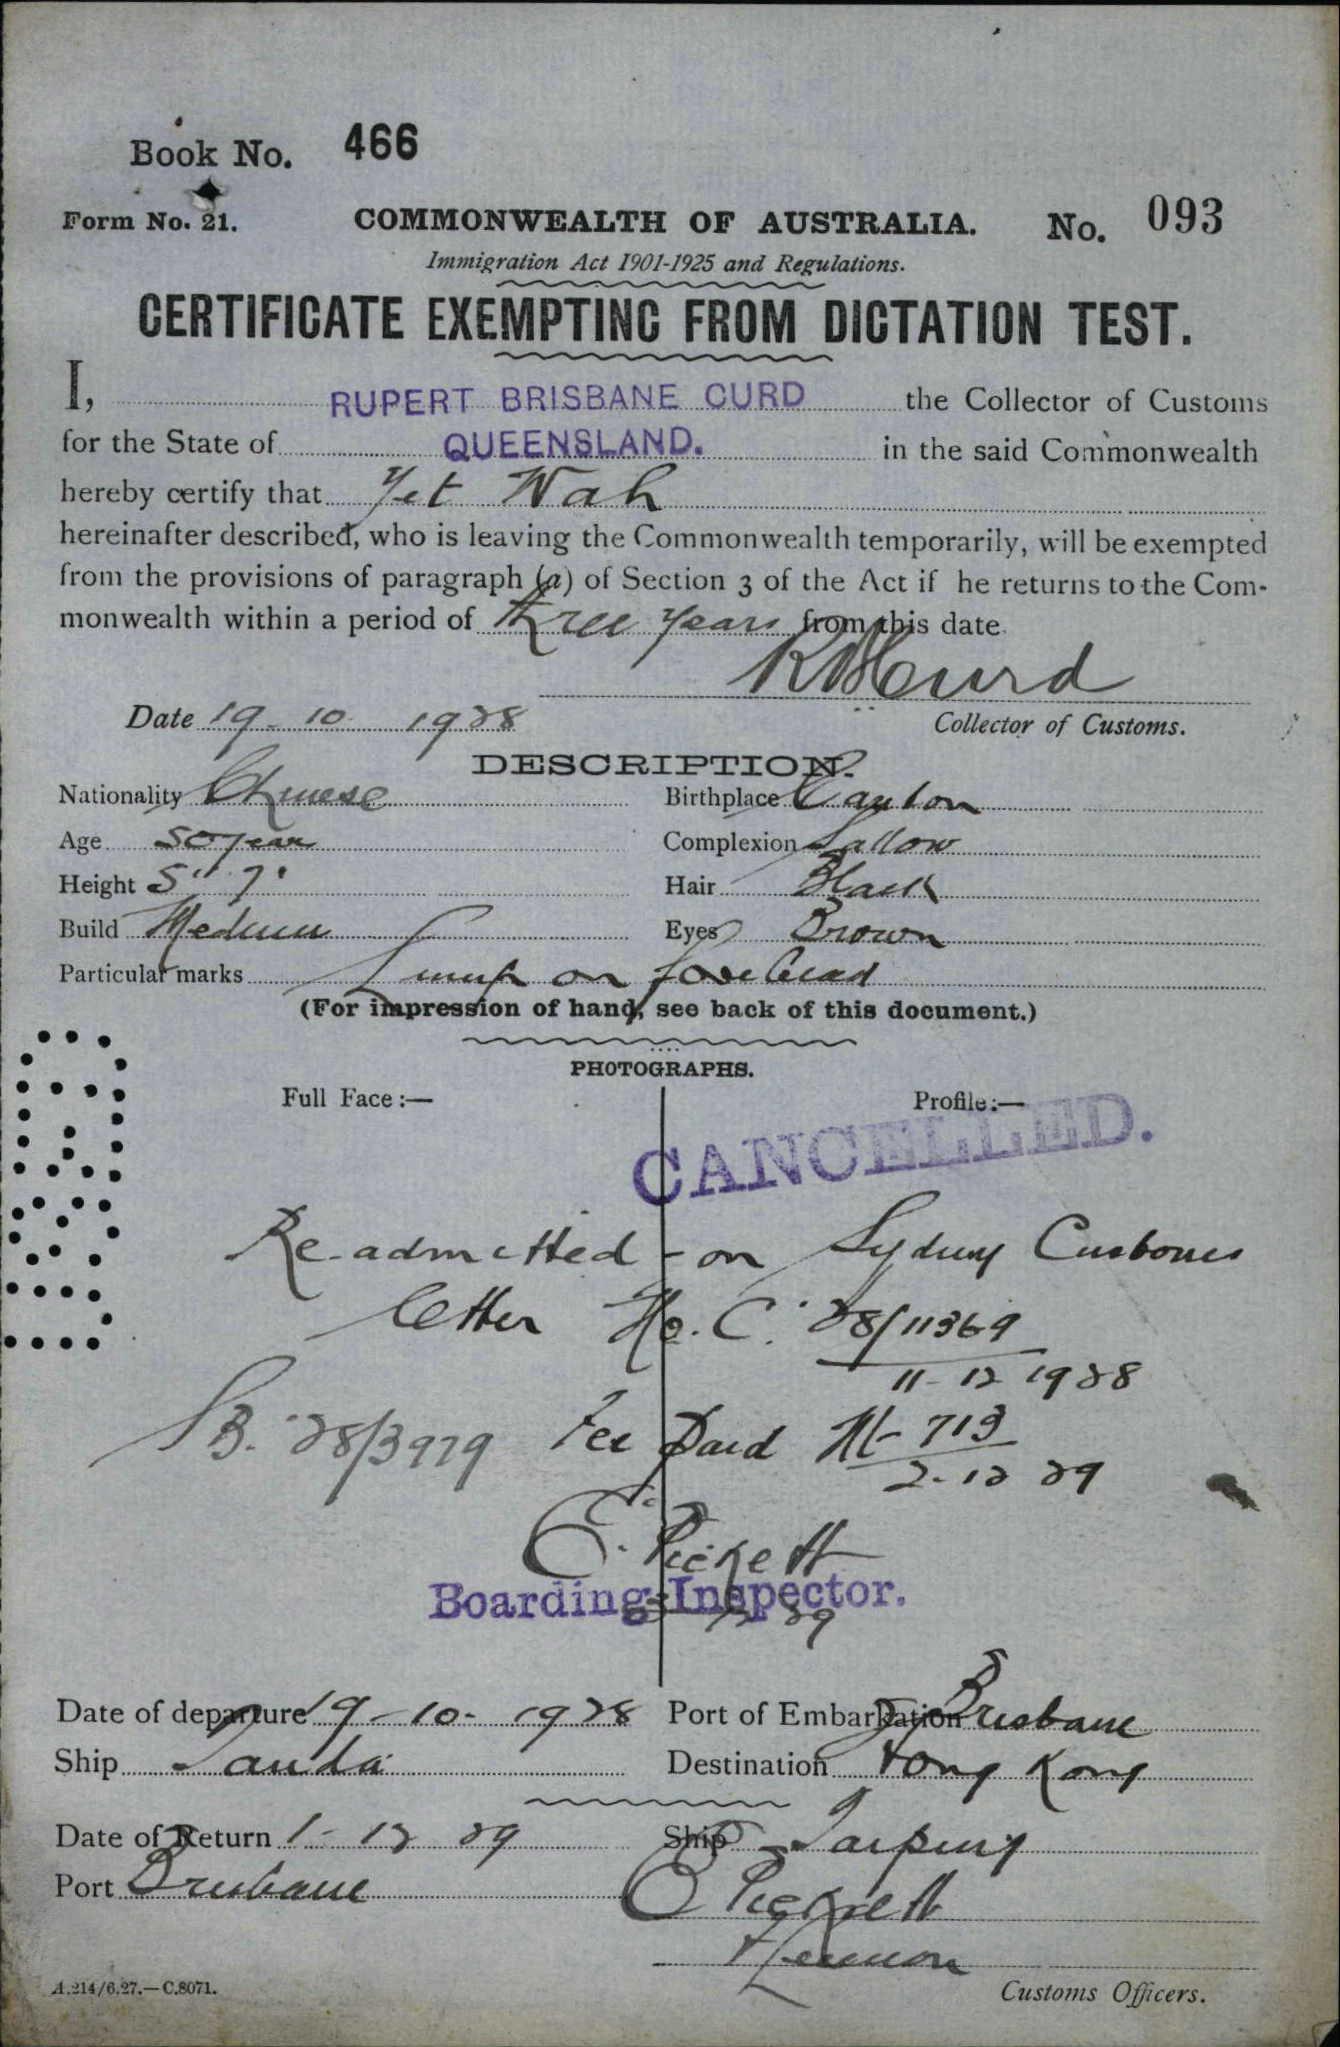 Book No. 466
Form No. 21. COMMONWEALTH OF AUSTRALIA. No. 093
Immigration Act 1901-1925 and Regulations.
CERTIFICATE EXEMPTING FROM DICTATION TEST.
I, RUPERT BRISBANE CURD the Collector of Customs
for the State of QUEENSLAND. in the said Commonwealth
hereby certify that Yet Wah
hereinafter described, who is leaving the Commonwealth temporarily, will be exempted
from the provisions of paragraph (a) of Section 3 of the Act if he returns to the Com-
monwealth within a period of three years from this date.
RBCurd
Date 19-10 1928 Collector of Customs.
DESCRIPTION.
Nationality Chinese Birthplace Canton
Age 50 year Complexion Sallow
Height 5' 7" Hair Black
Build Medium Eyes Brown
Particular marks Lump on forehead
(For impression of hand, see back of this document.)
PHOTOGRAPHS.
Full Face:— Profile:—
CANCELLED.
Re-admitted - on Sydney Customs
letter No. C. 28/11369
11-12 1928
SB. 28/3979 Fee Paid M- 713
2-12 29
E. Pickett
Boarding Inspector.
12 29
Date of departure 19-10-1928 Port of Embarkation Brisbane
Ship Tanda Destination Hong Kong
Date of Return 1-12 29 Ship Taiping
Port Brisbane E Pickett
Customs Officers.
A.214/6.27.—C.8071.